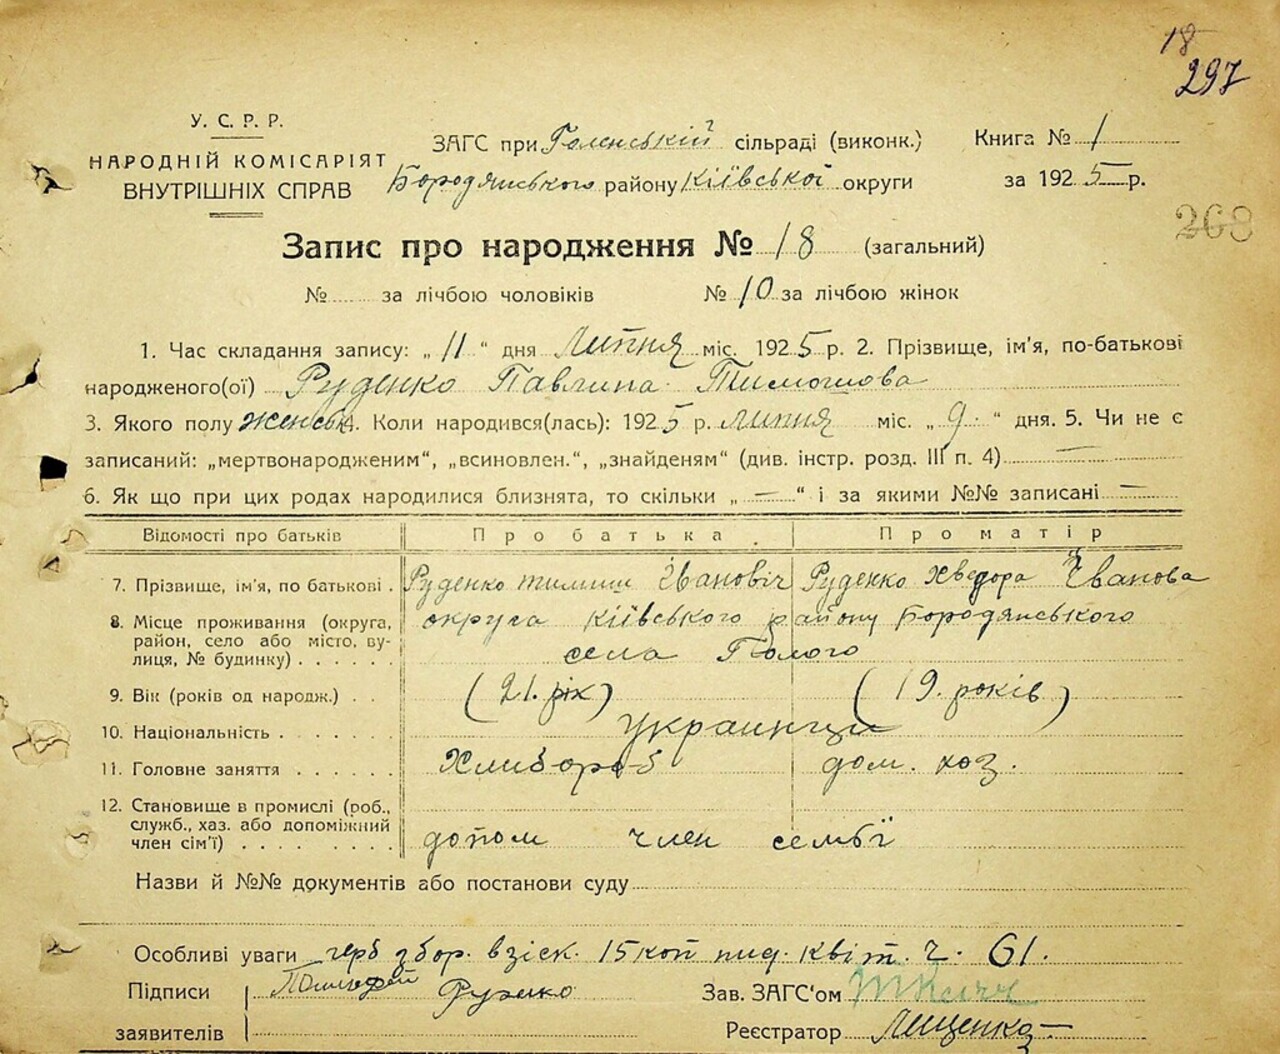 18
297
У. С. Р. Р.
НАРОДНІЙ КОМІСАРІЯТ
ВНУТРІШНІХ СПРАВ
ЗАГС при сільраді (виконк.)
Бородянського району Київської округи
Книга № 1
за 1925 р.
268
Запис про народження № 18 (загальний)
№ ...... за лічбою чоловіків № 10 за лічбою жінок
1. Час складання запису: „ 11 “ дня Липня міс. 1925 р. 2. Прізвище, ім'я, по-батькові
народженого(ої) Руденко Павлина Тимошова
3. Якого полу женськ. Коли народився(лась): 1925 р. липня міс. „ 9 “ дня. 5. Чи не є
записаний: „мертвонародженим“, „всиновлен.“, „знайденям“ (див. інстр. розд. III п. 4) —
6. Як що при цих родах народилися близнята, то скільки „ — “ і за якими №№ записані —
Відомості про батьків Про батька Про матір
7. Прізвище, ім'я, по батькові . Руденко тимиш Іванович Руденко Хведора Іванова
8. Місце проживання (округа, округа київського району Бородянського
район, село або місто, ву-
лиця, № будинку) . . . . . . села
9. Вік (років од народж.) . . (21. рік) (19. років)
10. Національність . . . . . . . украинци
11. Головне заняття . . . . . . Хлибороб дом. хоз.
12. Становище в промислі (роб.,
служб., хаз. або допоміжний
член сім'ї) . . . . . . . . . допом член семьї
Назви й №№ документів або постанови суду
Особливі уваги герб збор. взіск. 15 коп пид. квіт. ч. 61.
Підписи
заявителів
Зав. ЗАГС'ом Ткач
Реєстратор Лищенко